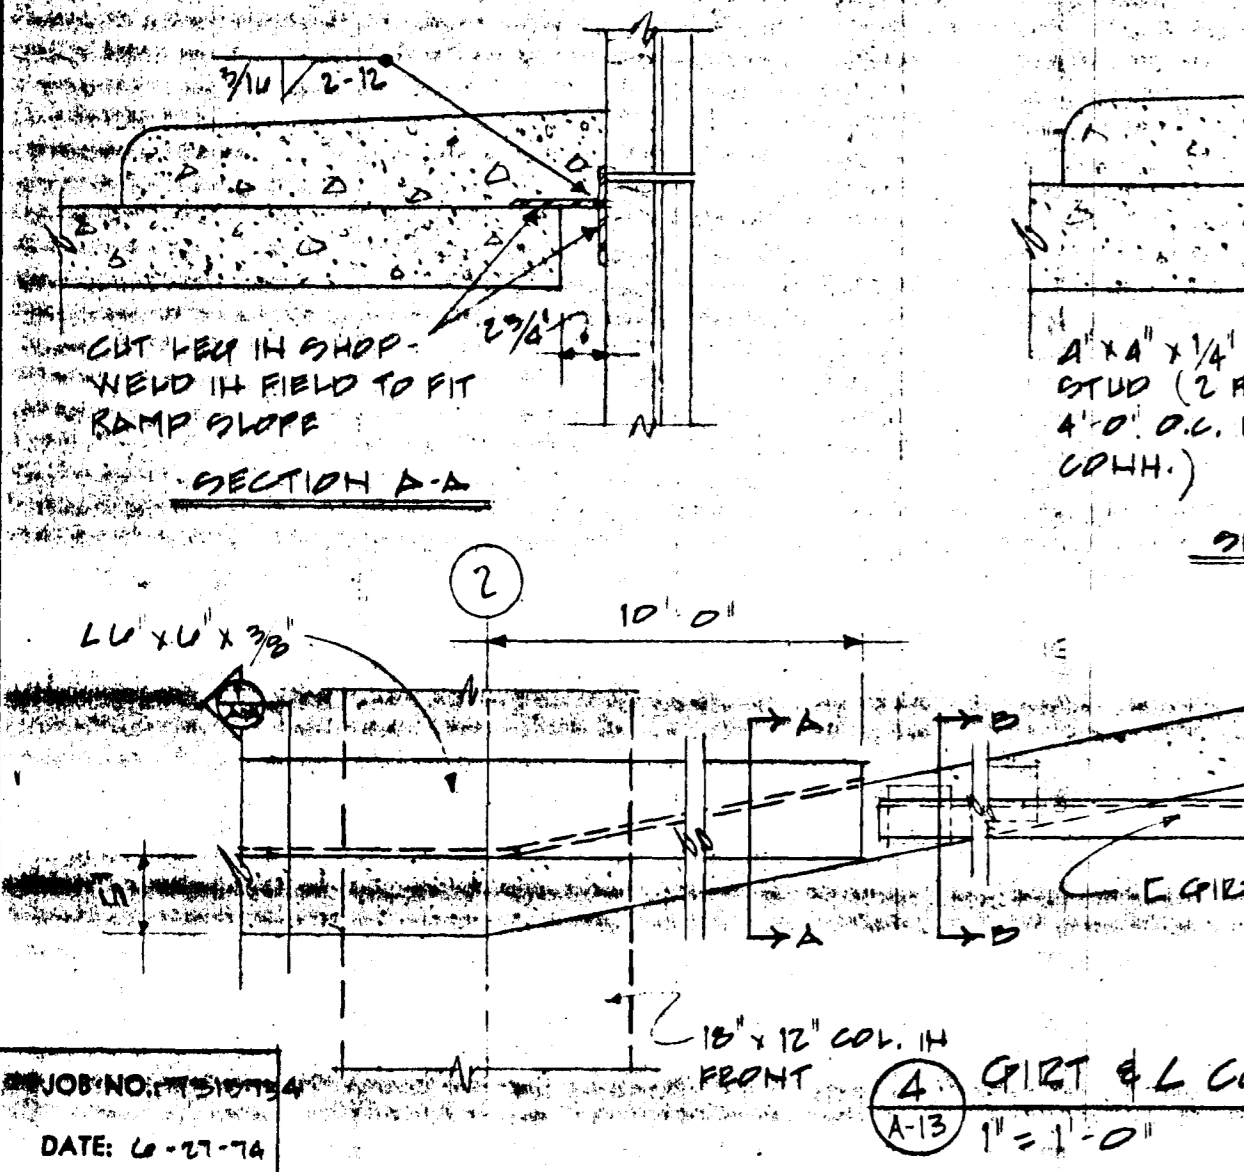 3/16 2-12
CUT LEG IN SHOP-
WELD IN FIELD TO FIT
RAMP SLOPE
2 3/4"
SECTION A-A
4" x 4" x 1/4"
STUD (2
4'-0" O.C.
CONN.)
2
10'-0"
L 6" x 6" x 3/8"
A
A
B
5"
A
B
[ GIRT
18" x 12" COL. IN
FRONT
4
A-13
GIRT & L CO
1" = 1'-0"
JOB NO.:
DATE: 6-27-74